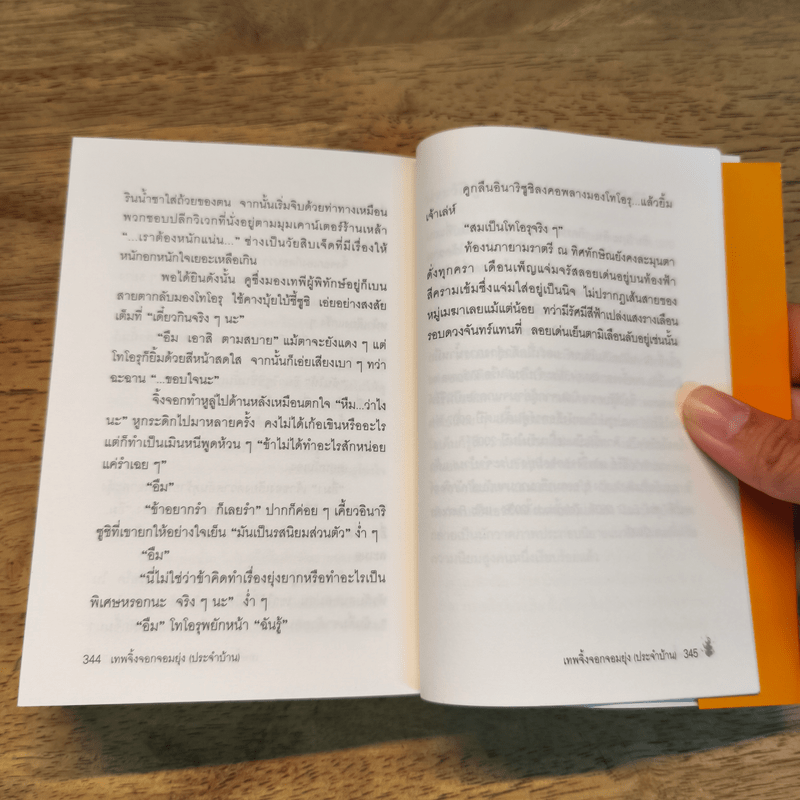 รินน้ำชาใส่ถ้วยของตน จากนั้นเริ่มจิบด้วยท่าทางเหมือน
พวกชอบปลีกวิเวกที่นั่งอยู่ตามมุมเคาน์เตอร์ร้านเหล้า
“...เราต้องหนักแน่น...” ช่างเป็นวัยสิบเจ็ดที่มีเรื่องให้
หนักอกหนักใจเยอะเหลือเกิน
พอได้ยินดังนั้น คูซึ่งมองเทพีผู้พิทักษ์อยู่ก็เบน
สายตากลับมองโทโอรุ ใช้คางบุ้ยใบ้ชี้ซูชิ เอ่ยอย่างสงสัย
เต็มที่ “เดี๋ยวกินจริง ๆ นะ”
“อืม เอาสิ ตามสบาย” แม้ตาจะยังแดง ๆ แต่
โทโอรุก็ยิ้มด้วยสีหน้าสดใส จากนั้นก็เอ่ยเสียงเบา ๆ ทว่า
ฉะฉาน “...ขอบใจนะ”
จิ้งจอกทำหูลู่ไปด้านหลังเหมือนตกใจ “หืม...ว่าไง
นะ” หูกระดิกไปมาหลายครั้ง คงไม่ได้เก้อเขินหรืออะไร
แต่ก็ทำเป็นเมินหนีพูดห้วน ๆ “ข้าไม่ได้ทำอะไรสักหน่อย
แค่รำเฉย ๆ”
“อืม”
“ข้าอยากรำ ก็เลยรำ” ปากก็ค่อย ๆ เคี้ยวอินาริ
ซูชิที่เขายกให้อย่างใจเย็น “มันเป็นรสนิยมส่วนตัว” ง่ำ ๆ
“อืม”
“นี่ไม่ใช่ว่าข้าคิดทำเรื่องยุ่งยากหรือทำอะไรเป็น
พิเศษหรอกนะ จริง ๆ นะ” ง่ำ ๆ
“อืม” โทโอรุพยักหน้า “ฉันรู้”
344 เทพจิ้งจอกจอมยุ่ง (ประจำบ้าน)
คูกลืนอินาริซูชิลงคอพลางมองโทโอรุ...แล้วยิ้ม
เจ้าเล่ห์
“สมเป็นโทโอรุจริง ๆ”
ท้องนภายามราตรี ณ ทิศทักษิณยังคงละมุนตา
ดั่งทุกครา เดือนเพ็ญแจ่มจรัสลอยเด่นอยู่บนท้องฟ้า
สีครามเข้มซึ่งแจ่มใสอยู่เป็นนิจ ไม่ปรากฏเส้นสายของ
หมู่เมฆาเลยแม้แต่น้อย ทว่ามีรัศมีสีฟ้าเปล่งแสงรางเลือน
รอบดวงจันทร์แทนที่ ลอยเด่นเย็นตามิเลือนลับอยู่เช่นนั้น
เทพจิ้งจอกจอมยุ่ง (ประจำบ้าน) 345